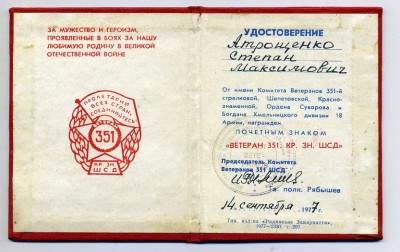 ЗА МУЖЕСТВО И ГЕРОИЗМ,
ПРОЯВЛЕННЫЕ В БОЯХ ЗА НАШУ
ЛЮБИМУЮ РОДИНУ В ВЕЛИКОЙ
ОТЕЧЕСТВЕННОЙ ВОЙНЕ
ПРОЛЕТАРИИ
ВСЕХ СТРАН,
СОЕДИНЯЙТЕСЬ
351
КР. ЗН.
ШСД
УДОСТОВЕРЕНИЕ
Атрощенко
Степан
Максимович
От имени Комитета Ветеранов 351-й
стрелковой, Шепетовской, Красно-
знаменной, Ордена Суворова и
Богдана Хмельницкого дивизии 18
Армии, награжден
ПОЧЕТНЫМ ЗНАКОМ
«ВЕТЕРАН: 351. КР. ЗН. ШСД»
Председатель Комитета
Ветеранов 351 ШСД
Гв. полк. Рябышев
14 сентября 1977 г.